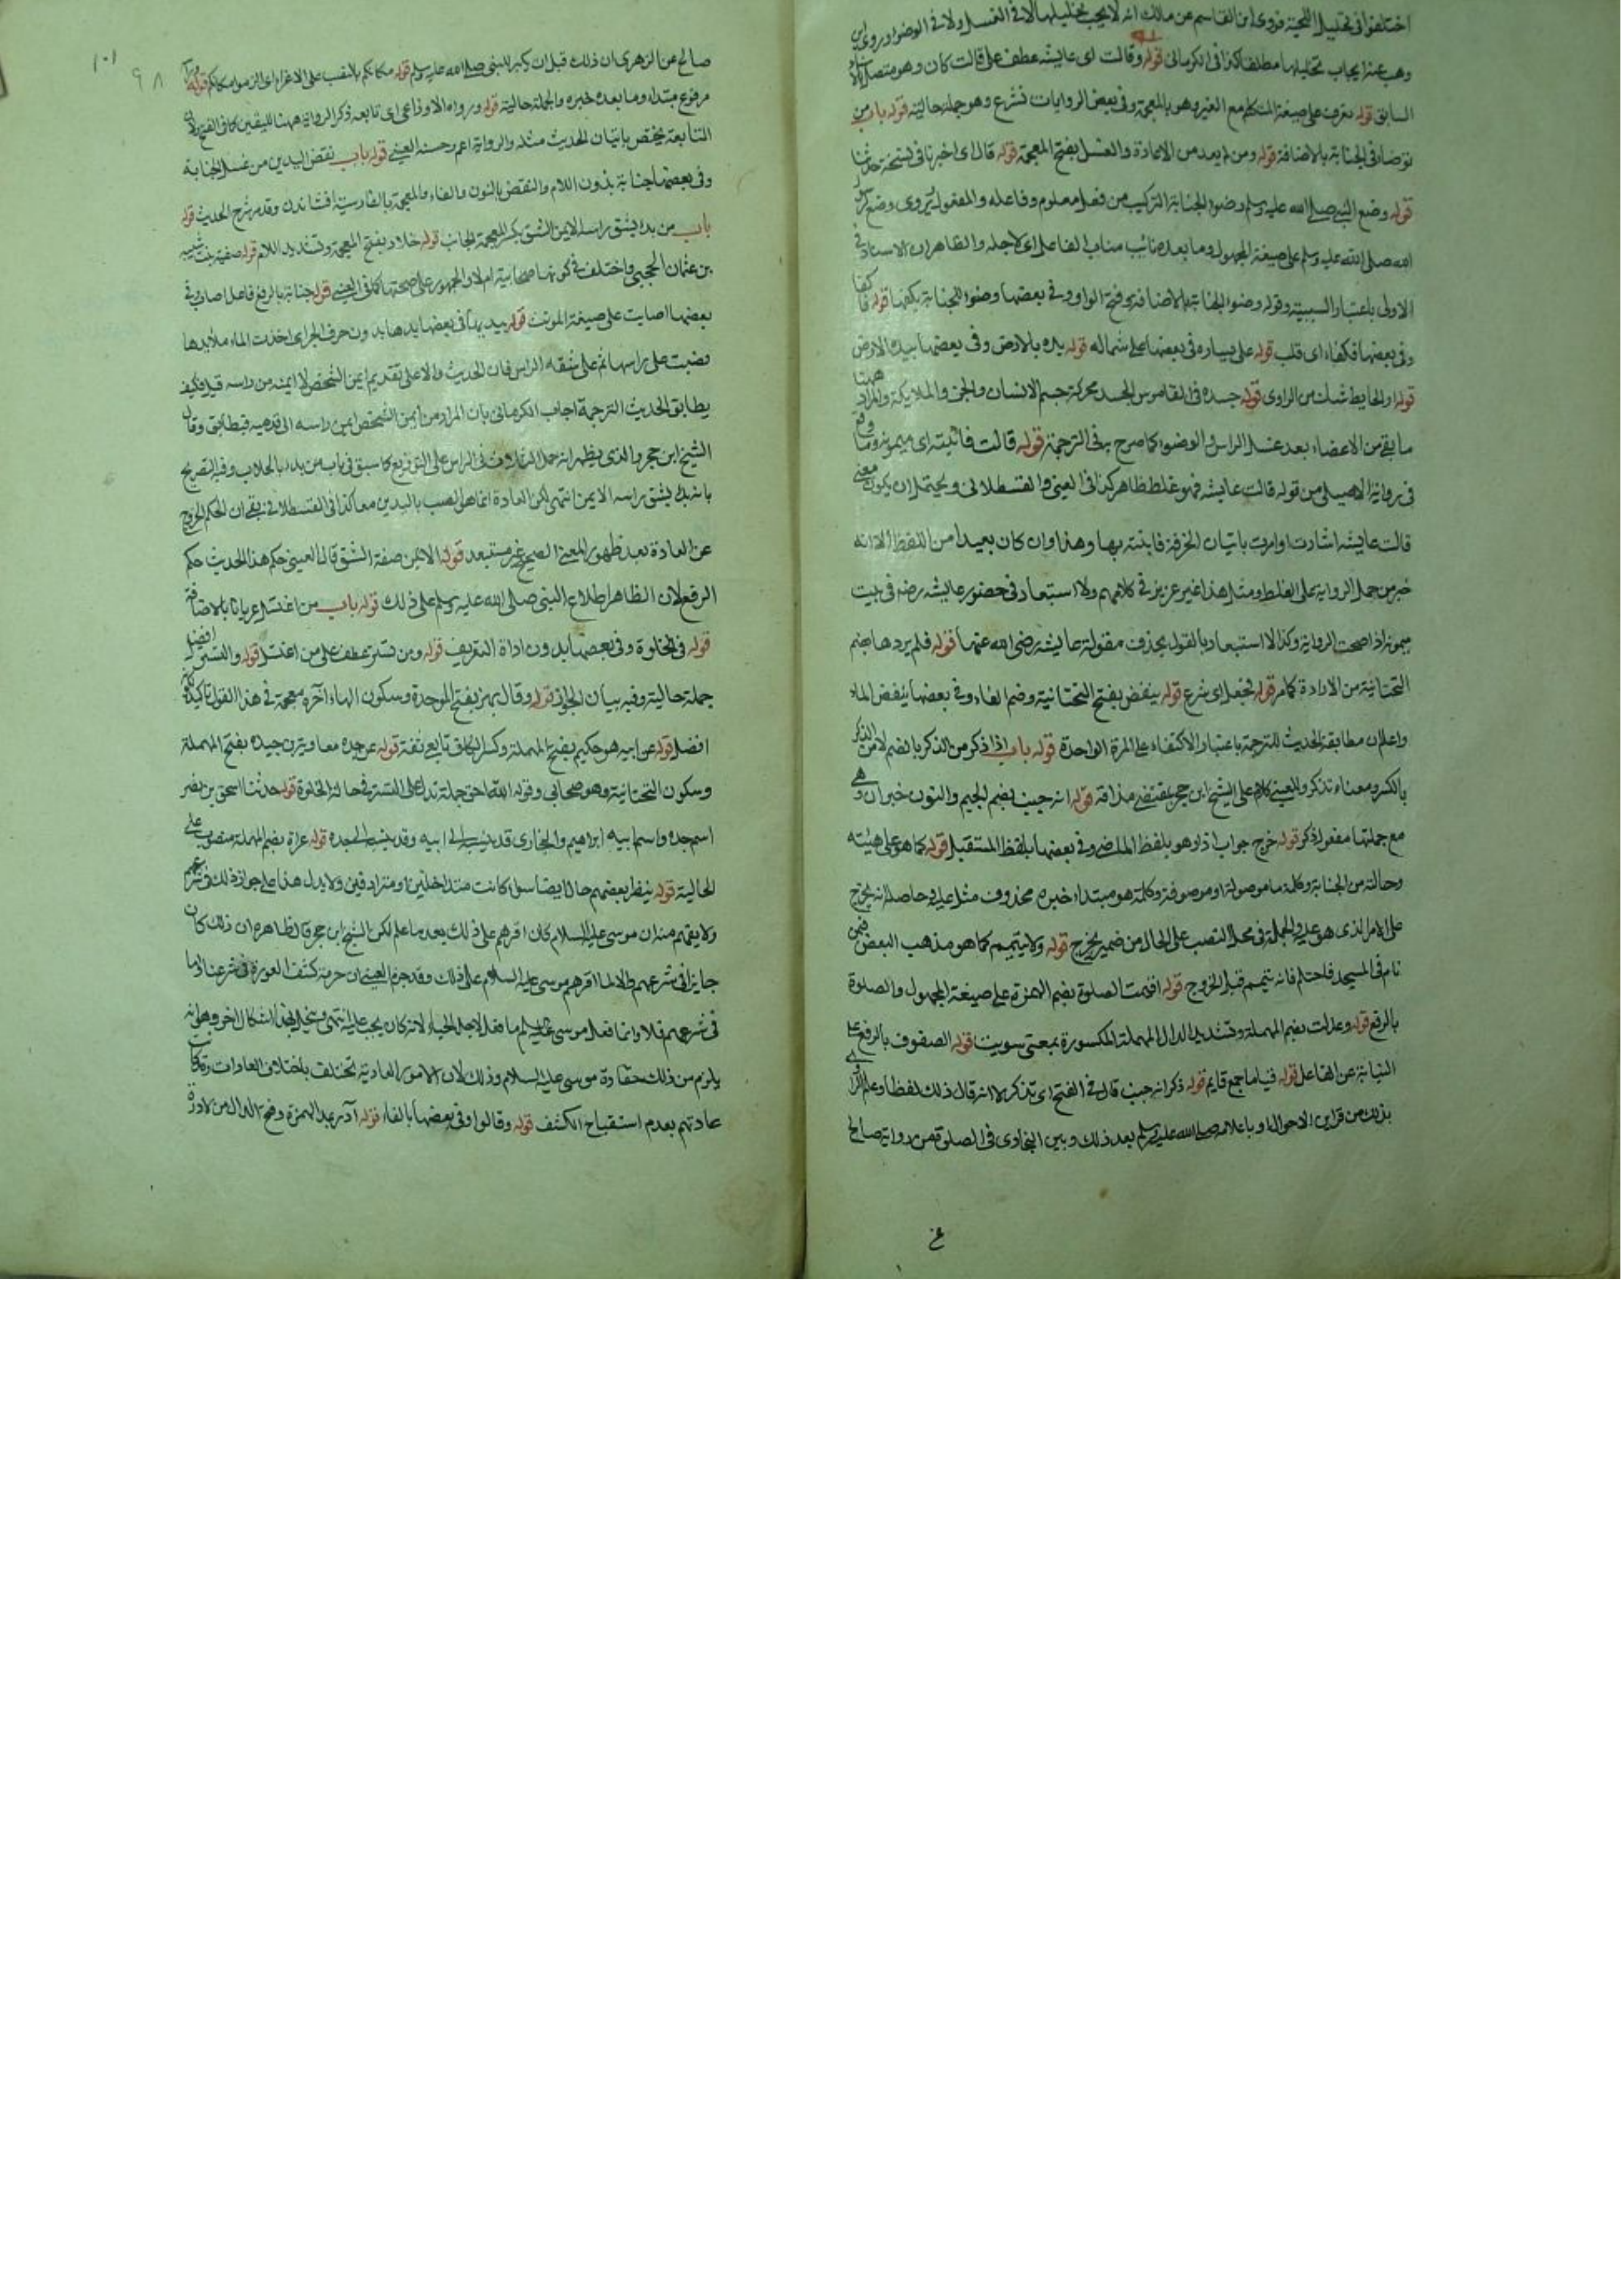 اختلفوا في تخليل اللحية فروى ابن القاسم عن مالك انه لا يجب تخليلها لا في الغسل ولا في الوضوء وروى ابن
وهب عنه ايجاب تخليلها مطلقا كذا في الكرماني قوله وقالت اى عايشة عطف على قالت كان وهو متصل بالاسناد
السابق قوله نغرف على صيغة المتكلم مع الغير وهو بالمعجمة وفي بعض الروايات نشرع وهو جملة حالية قوله باب من
توضأ في الجنابة بالاضافة قوله ومن لم يعد من الاعادة والغسل بفتح المعجمة قوله قال اى اخبرنا في نسخة حدثنا
قوله وضع النبي صلى الله عليه وسلم وضوء الجنابة التركيب من فعل معلوم وفاعله والمفعول يروى وضع لرسول
الله صلى الله عليه وسلم على صيغة المجهول وما بعده نائب مناب الفاعل اى لاجله والظاهر ان الاسناد في
الاولى باعتبار السببية وقوله وضوء الجنابة بالاضافة وفتح الواو وفي بعضها وضوء للجنابة يكفها قوله فاكفا
وفي بعضها فكفاء اى قلب قوله على يساره في بعضها على شماله قوله يده بالارض وفي بعضها بيده الارض
قوله او الحايط شك من الراوى قوله جسده في القاموس الجسد محركة جسم الانسان والجن والملايكة والمراد ههنا
ما بقى من الاعضاء بعد غسل الراس والوضوء كما صرح به في الترجمة قوله قالت فاتيته اى ميمونة وما وقع
في رواية الاصيلى من قوله قالت عايشة فهو غلط ظاهر كذا في العيني والقسطلاني ويحتمل ان يكون معنى
قالت عايشة اشارت او امرت باتيان الخرقة فاتيته بها وهذا وان كان بعيدا من اللفظ الا انه
خير من حمل الرواية على الغلط ومثل هذا غير عزيز في كلامهم ولا استبعاد في حضور عايشة رضه في بيت
ميمونة اذا صحت الرواية وكذا لا استبعاد بالقول بحذف مقولة عايشة رضى الله عنها قوله فلم يردها بضم
التحتانية من الارادة كما مر قوله فجعل اى شرع قوله ينفض بفتح التحتانية وضم الفاء وفي بعضها ينفض الماء
واعلم ان مطابقة الحديث للترجمة باعتبار الاكتفاء على المرة الواحدة قوله باب اذا ذكر من الذكر بالضم لا من الذكر
بالكسر ومعناه تذكر وللعيني كلام على الشيخ ابن حجر بمقتضى مذاقه قوله انه جنب بضم الجيم والنون خبر ان وهى
مع جملتها مفعول ذكر قوله خرج جواب اذا وهو بلفظ الماضى وفي بعضها بلفظ المستقبل قوله كما هو على هيئته
وحالته من الجنابة وكلمة ما موصولة او موصوفة وكلمة هو مبتداء خبره محذوف مثل عليه وحاصله انه يخرج
على الامر الذى هو عليه والجملة في محل النصب على الحال من ضمير يخرج قوله ولا يتيمم كما هو مذهب البعض فمن
نام في المسجد فاحتلم فانه يتيمم قبل الخروج قوله اقيمت الصلوة بضم الهمزة على صيغة المجهول والصلوة
بالرفع قوله وعدلت بضم المهملة وتشديد الدال المهملة المكسورة بمعنى سويت قوله الصفوف بالرفع على
النيابة عن الفاعل قوله قياما جمع قايم قوله ذكر انه جنب قال في الفتح اى تذكر لا انه قال ذلك لفظا وعلم الراوى
بذلك من قراين الاحوال او باعلامه صلى الله عليه وسلم بعد ذلك وبين البخارى في الصلوة من رواية صالح
صالح عن الزهرى ان ذلك قبل ان يكبر النبي صلى الله عليه وسلم قوله مكانكم بالنصب على الاغراء اى الزموا مكانكم قوله
مرفوع مبتداء وما بعده خبره والجملة حالية قوله ورواه الاوزاعى اى تابعه ذكر الرواية ههنا
المتابعة يختص باتيان الحديث مثله والرواية اعم وحسنه العيني قوله باب نفض اليدين من غسل الجنابة
وفي بعضها جنابة بدون اللام والنفض بالنون والفاء والمعجمة بالفارسية افشاندن وقد مر شرح الحديث قوله
باب من بدأ بشق راسه الايمن الشق بكسر المعجمة الجانب قوله خلاد بفتح المعجمة وتشديد اللام قوله صفية بنت شيبه
بن عثمان الحجبي واختلف في كونها صحابية ام لا والجمهور على صحبتها كما في العيني قوله جنابة بالرفع فاعل اصاب وفي
بعضها اصابت على صيغة المونث قوله بيديها في بعضها يدها بدون حرف الجر اى اخذت الماء ملأ يدها
وصبت على راسها ثم على شقه الراس فان الحديث دال على تقديم ايمن الشخص لا ايمنه من راسه قيل وكيف
يطابق الحديث الترجمة اجاب الكرماني بان المراد من ايمن الشخص ايمن راسه الى قدميه فيطابق وقال
الشيخ ابن حجر والذى يظهر انه حمل الثلاث في الراس على التوزيع كما سبق في باب من بدأ بالحلاب وفيه التصريح
بانه بدأ بشق راسه الايمن انتهى لكن العادة انما هو الصب باليدين معا كذا في القسطلاني بقى ان الحكم الخروج
عن العادة بعد ظهور المعنى الصحيح غير مستبعد قوله الايمن صفة الشق قال العيني حكم هذا الحديث حكم
الرفع لان الظاهر اطلاع النبى صلى الله عليه وسلم على ذلك قوله باب من اغتسل عريانا بالاضافة
قوله في الخلوة وفي بعضها بدون اداة التعريف قوله ومن تستر عطف على من اغتسل قوله والتستر افضل
جملة حالية وفيه بيان الجواز قوله وقال بهز بفتح الموحدة وسكون الهاء آخره معجمة في هذا القول تاكيد
افضل قوله عن ابيه هو حكيم بفتح المهملة وكسر الكاف تابعى ثقة قوله عن جده معاوية بن حيده بفتح المهملة
وسكون التحتانية وهو صحابي وقوله الله احق جملة تدل على التستر في حالة الخلوة قوله حدثنا اسحق بن نصر
اسم جده واسم ابيه ابراهيم والبخارى قد ينسبه الى ابيه وقد ينسبه الى جده قوله عراة بضم المهملة منصوب على
الحالية قوله ينظر بعضهم حال ايضا سواء كانت متداخلتين او مترادفين ولا يدل هذا على جواز ذلك في شرعهم
ولا يفهم منه ان موسى عليه السلام كان اقرهم على ذلك بعد ما علم لكن الشيخ ابن حجر قال ظاهره ان ذلك كان
جايزا في شرعهم والا لما اقرهم موسى عليه السلام على ذلك وقد جزم العيني ان حرمة كشف العورة في شرعنا واما
في شرعهم فلا وانما فعل موسى عليه السلام ما فعل لاجل الحياء لا انه كان يجب عليه انتهى وينحل بهذا اشكال اخر وهو انه
يلزم من ذلك حقارة موسى عليه السلام وذلك لان الامور العادية تختلف باختلاف العادات وكانت
عادتهم بعدم استقباح الكشف قوله وقالوا وفي بعضها بالفاء قوله آدر بمد الهمزة وفتح الدال من الادرة